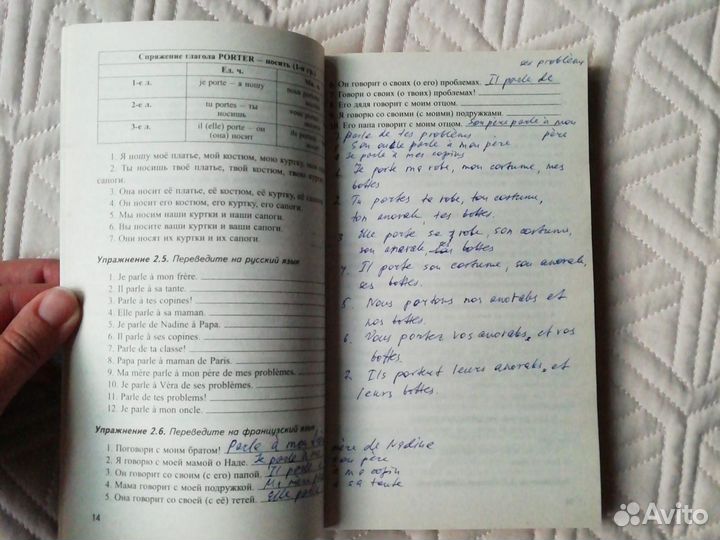 Спряжение глагола PORTER – носить (1-я гр.)
Ед. ч.
1-е л.
je porte – я ношу
2-е л.
tu portes – ты
носишь
3-е л.
il (elle) porte – он
(она) носит
1. Я ношу моё платье, мой костюм, мою куртку,
2. Ты носишь твоё платье, твой костюм, твою
сапоги.
3. Она носит её платье, её костюм, её куртку, её сапоги.
4. Он носит его костюм, его куртку, его сапоги.
5. Мы носим наши куртки и наши сапоги.
6. Вы носите ваши куртки и ваши сапоги.
7. Они носят их куртки и их сапоги.
Упражнение 2.5. Переведите на русский язык
1. Je parle à mon frère.
2. Il parle à sa tante.
3. Parle à tes copines!
4. Elle parle à sa maman.
5. Je parle de Nadine à Papa.
6. Il parle à ses copines.
7. Parle de ta classe!
8. Papa parle à maman de Paris.
9. Ma mère parle à mon père de mes problèmes.
10. Je parle à Véra de ses problèmes.
11. Parle de tes problems!
12. Je parle à mon oncle.
Упражнение 2.6. Переведите на французский язык
1. Поговори с моим братом! Parle à mon
2. Я говорю с моей мамой о Наде. Je parle à ma
3. Он говорит со своим (с его) папой. Il parle
4. Мама говорит с моей подружкой.
5. Она говорит со своей (с её) тетей. Elle parle
14
ses problèms
6. Он говорит о своих (о его) проблемах. Il parle de
7. Говори о своих (о твоих) проблемах!
8. Его дядя говорит с моим отцом.
9. Я говорю со своими (с моими) подружками
10. Его папа говорит с моим отцом. Son père parle à mon
père
parle de tes problèms
Son oncle parle à mon père
Je parle à mes copins
1. Je porte ma robe, mon costume, mes
bottes
2. Tu portes ta robe, ton costume,
ton anorak, tes bottes.
3 Elle porte sa robe, son costume,
son anorak, bottes
4. Il porte son costume, son anorak,
ses bottes.
5. Nous portons nos anoraks et
nos bottes.
6. Vous portez vos anoraks, et vos
bottes.
7. Ils portent leurs anoraks, et
leurs bottes.
mère de Nadine
son père
ma copin
à sa tante
Avito